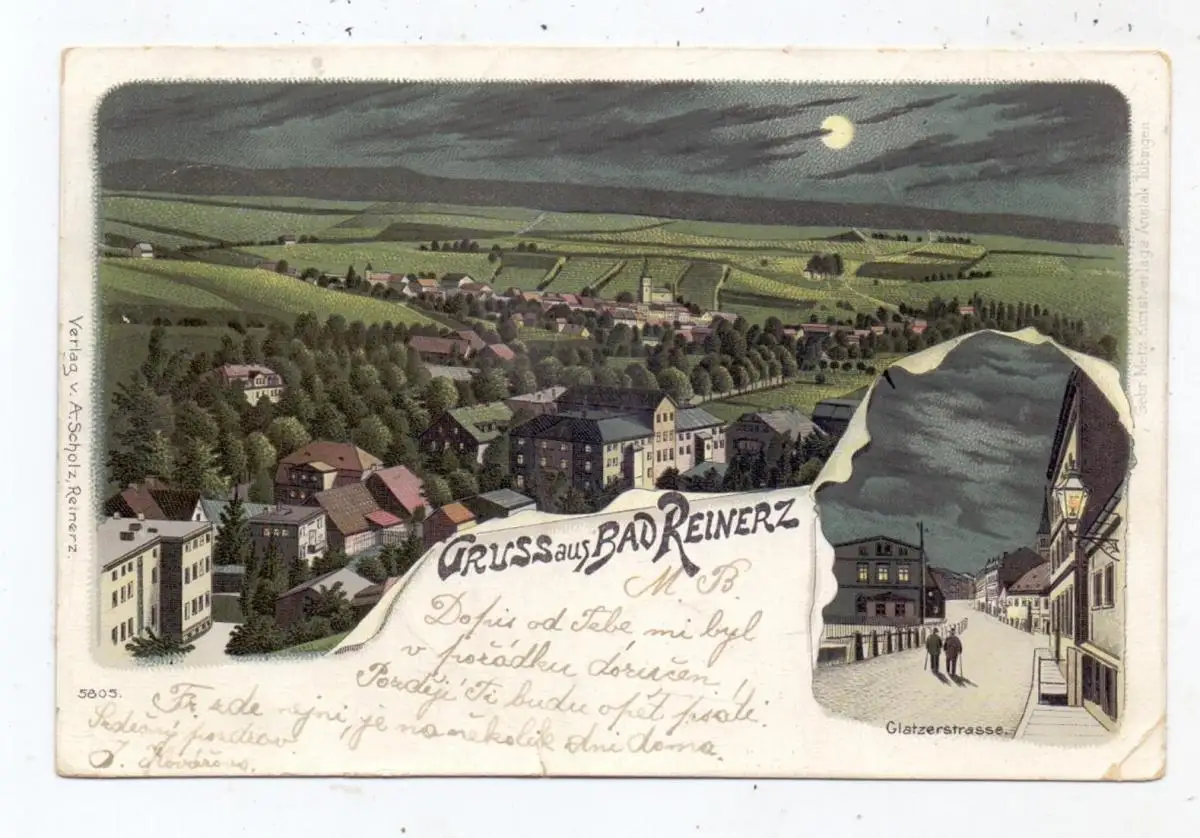 Verlag v. A. Scholz, Reinerz.
Gebr. Metz, Kunstverlags-Anstalt, Tübingen
GRUSS aus BAD REINERZ
M B.
Dopis od Tebe mi byl
v pořádku doručen,
Později Ti budu opět psáti.
Fr. zde nejni, je na několik dni doma.
Srdečný pozdrav
J.
5805.
Glatzerstrasse.